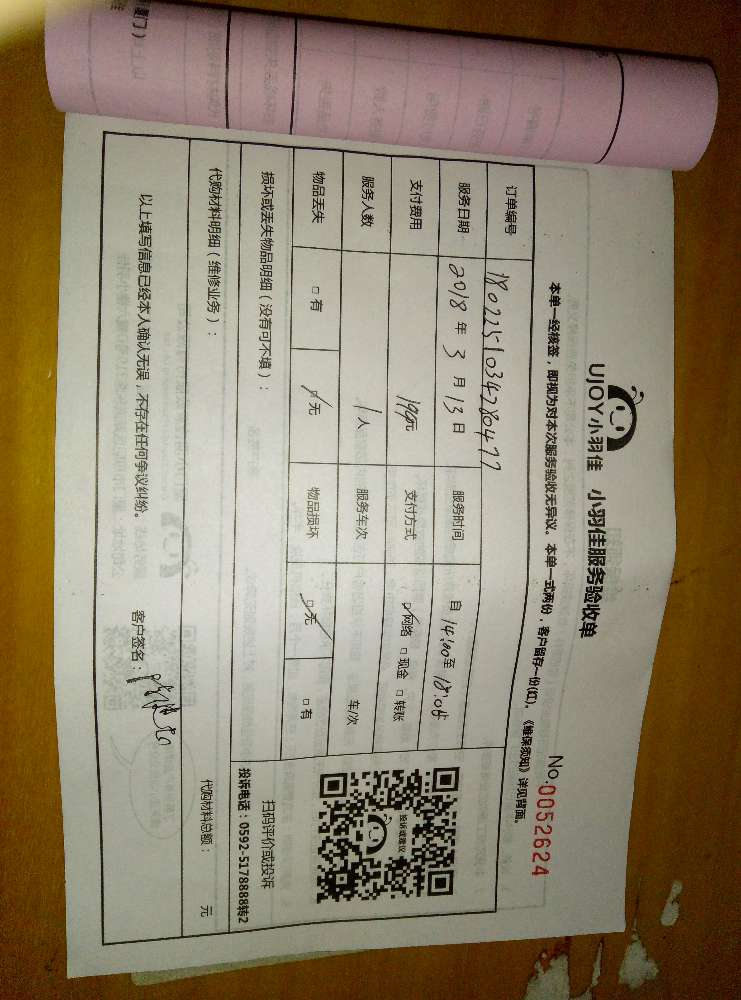 UJOY小羽佳 小羽佳服务验收单
No.0052624
本单一经核签，即视为对本次服务验收无异议。本单一式两份，客户留存一份(红)。《维保须知》详见背面。
订单编号 180225103478047
服务日期 2018 年 3 月 13 日 服务时间 自 14:00 至 18:05
支付费用 194元 支付方式 ☑网络 □现金 □转账
服务人数 1 人 服务车次 车/次
物品丢失 □有 ☑无 物品损坏 ☑无 □有
损坏或丢失物品明细（没有可不填）：
投诉或建议
扫码评价或投诉
投诉电话：0592-5178888转2
代购材料明细（维修业务）：
代购材料总额： 元
以上填写信息已经本人确认无误，不存在任何争议纠纷。
客户签名：